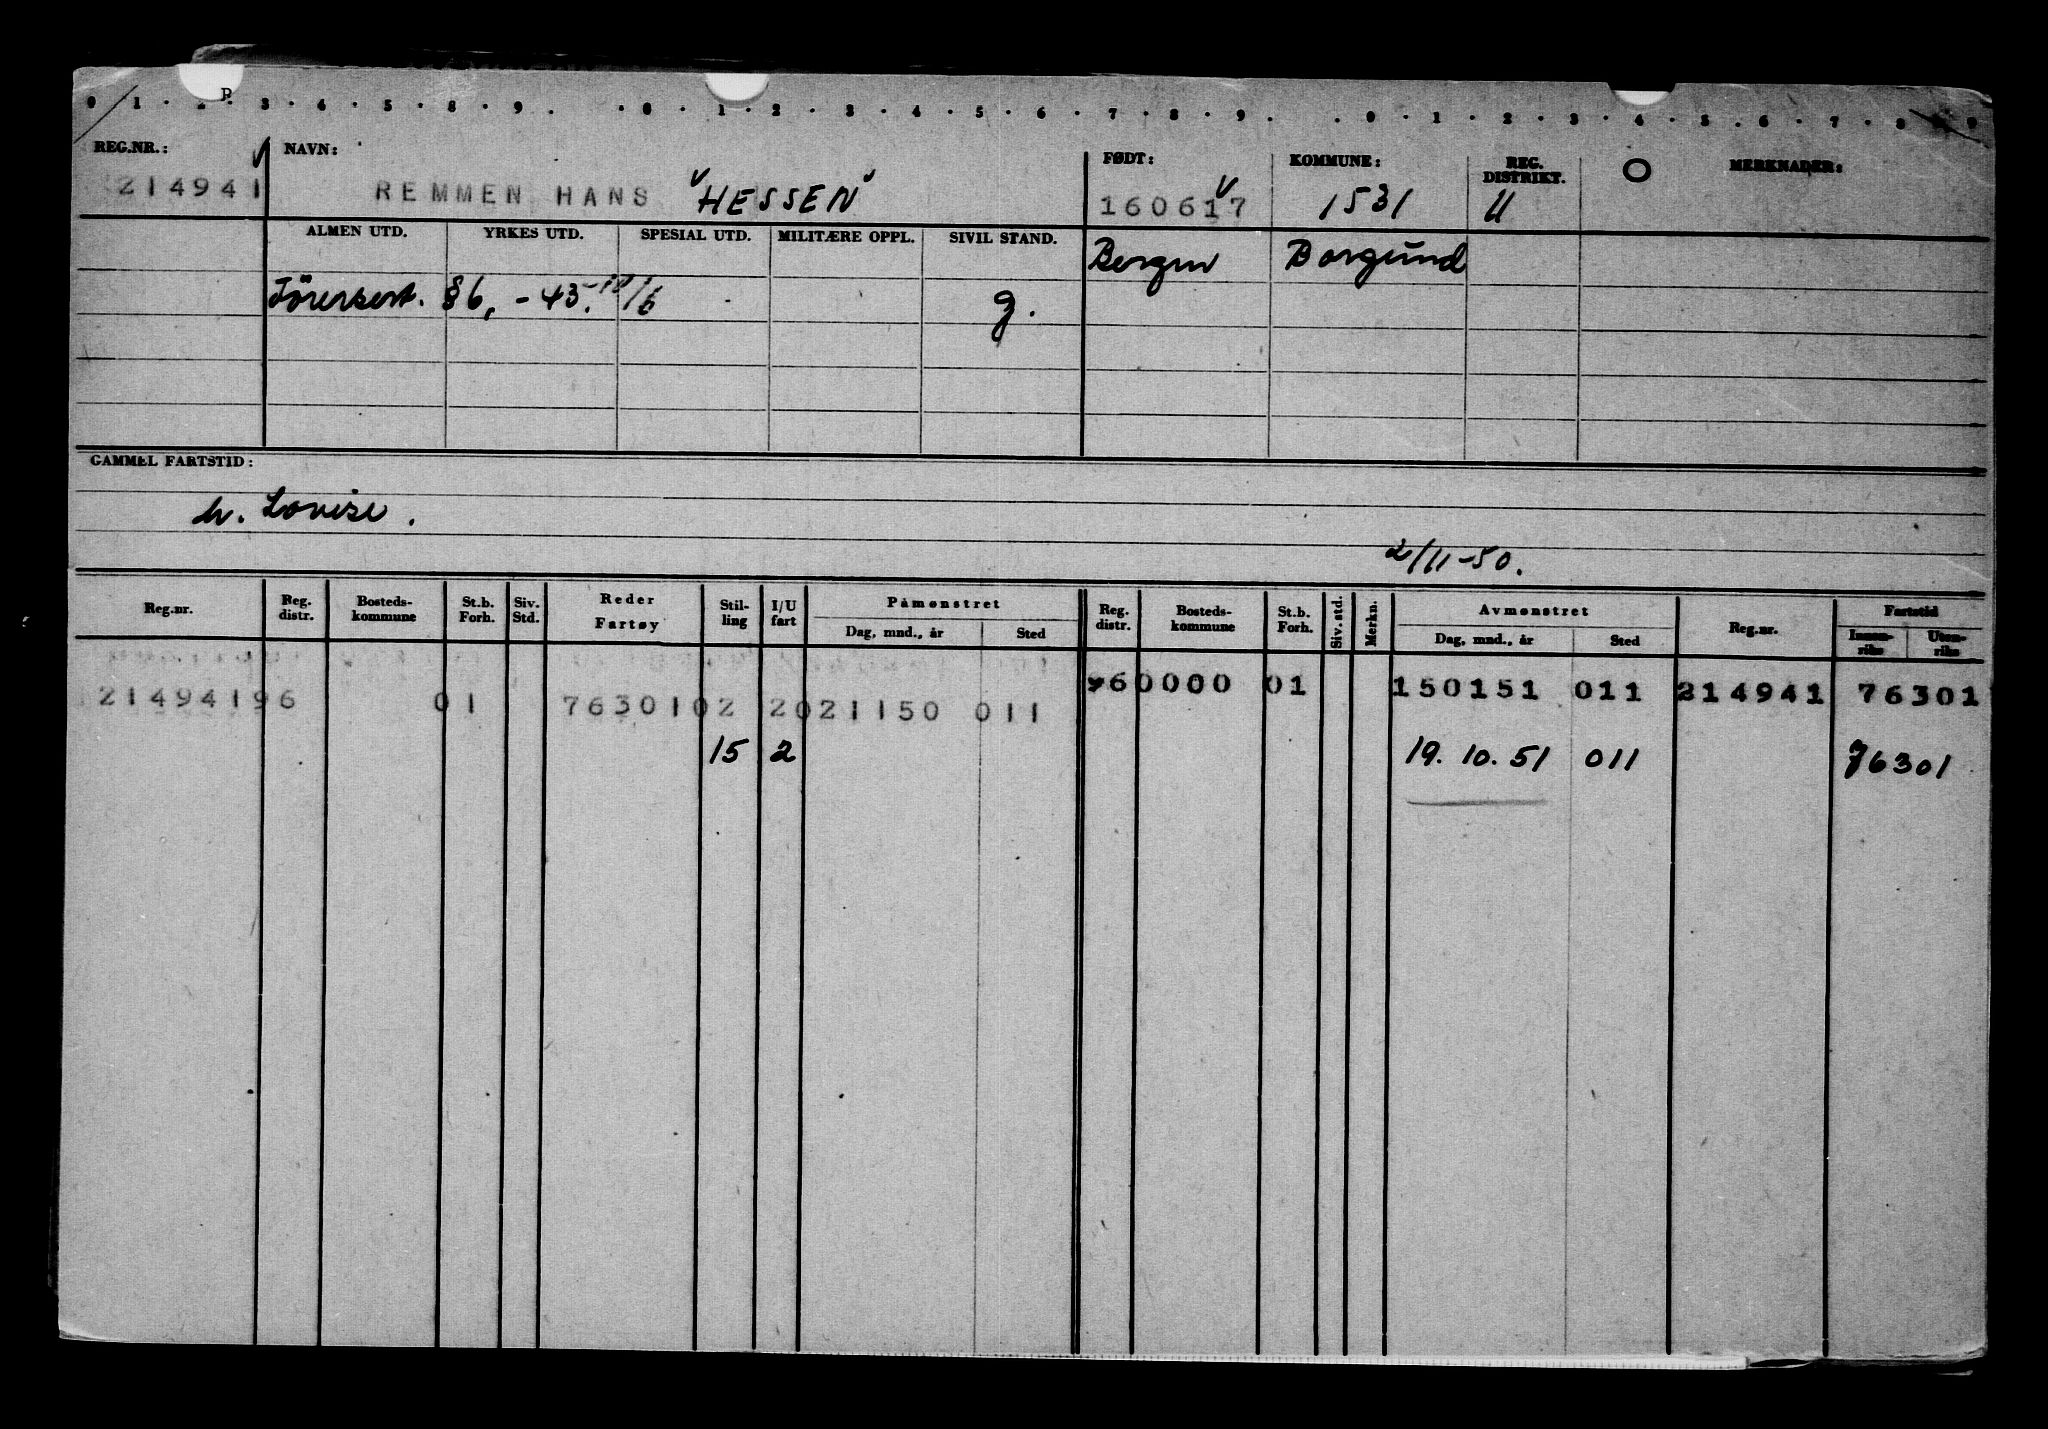 P
0 1 . 2 . 3 . 4 . 5 . 8 . 9 . . 0 . 1 . 2 . 3 . 4 . 5 . 6 . 7 . 8 . 9 . . 0 . 1 . 2 . 3 . 4 . 5 . 6 . 7 . 8 9
REG.NR.: NAVN: FØDT: KOMMUNE: REG. DISTRIKT. O MERKNADER:
214941 REMMEN HANS "HESSEN" 160617 1531 U
ALMEN UTD. YRKES UTD. SPESIAL UTD. MILITÆRE OPPL. SIVIL STAND. Bergen Borgund
Förersert. §6, - 43. - 18/6 g.
GAMMEL FARTSTID:
h. Lovise.
2/11-50.
Reg.nr. Reg. distr. Bosteds- kommune St.b. Forh. Siv. Std. Reder Fartøy Stil- ling I/U fart Påmønstret Dag, mnd., år Sted Reg. distr. Bosteds- kommune St.b. Forh. Siv. std. Merkn. Avmønstret Dag, mnd., år Sted Reg.nr. Fartstid Innen- riks Uten- riks
21494196 01 7630102 2021150 011 960000 01 150151 011 214941 76301
15 2 19. 10. 51 011 76301